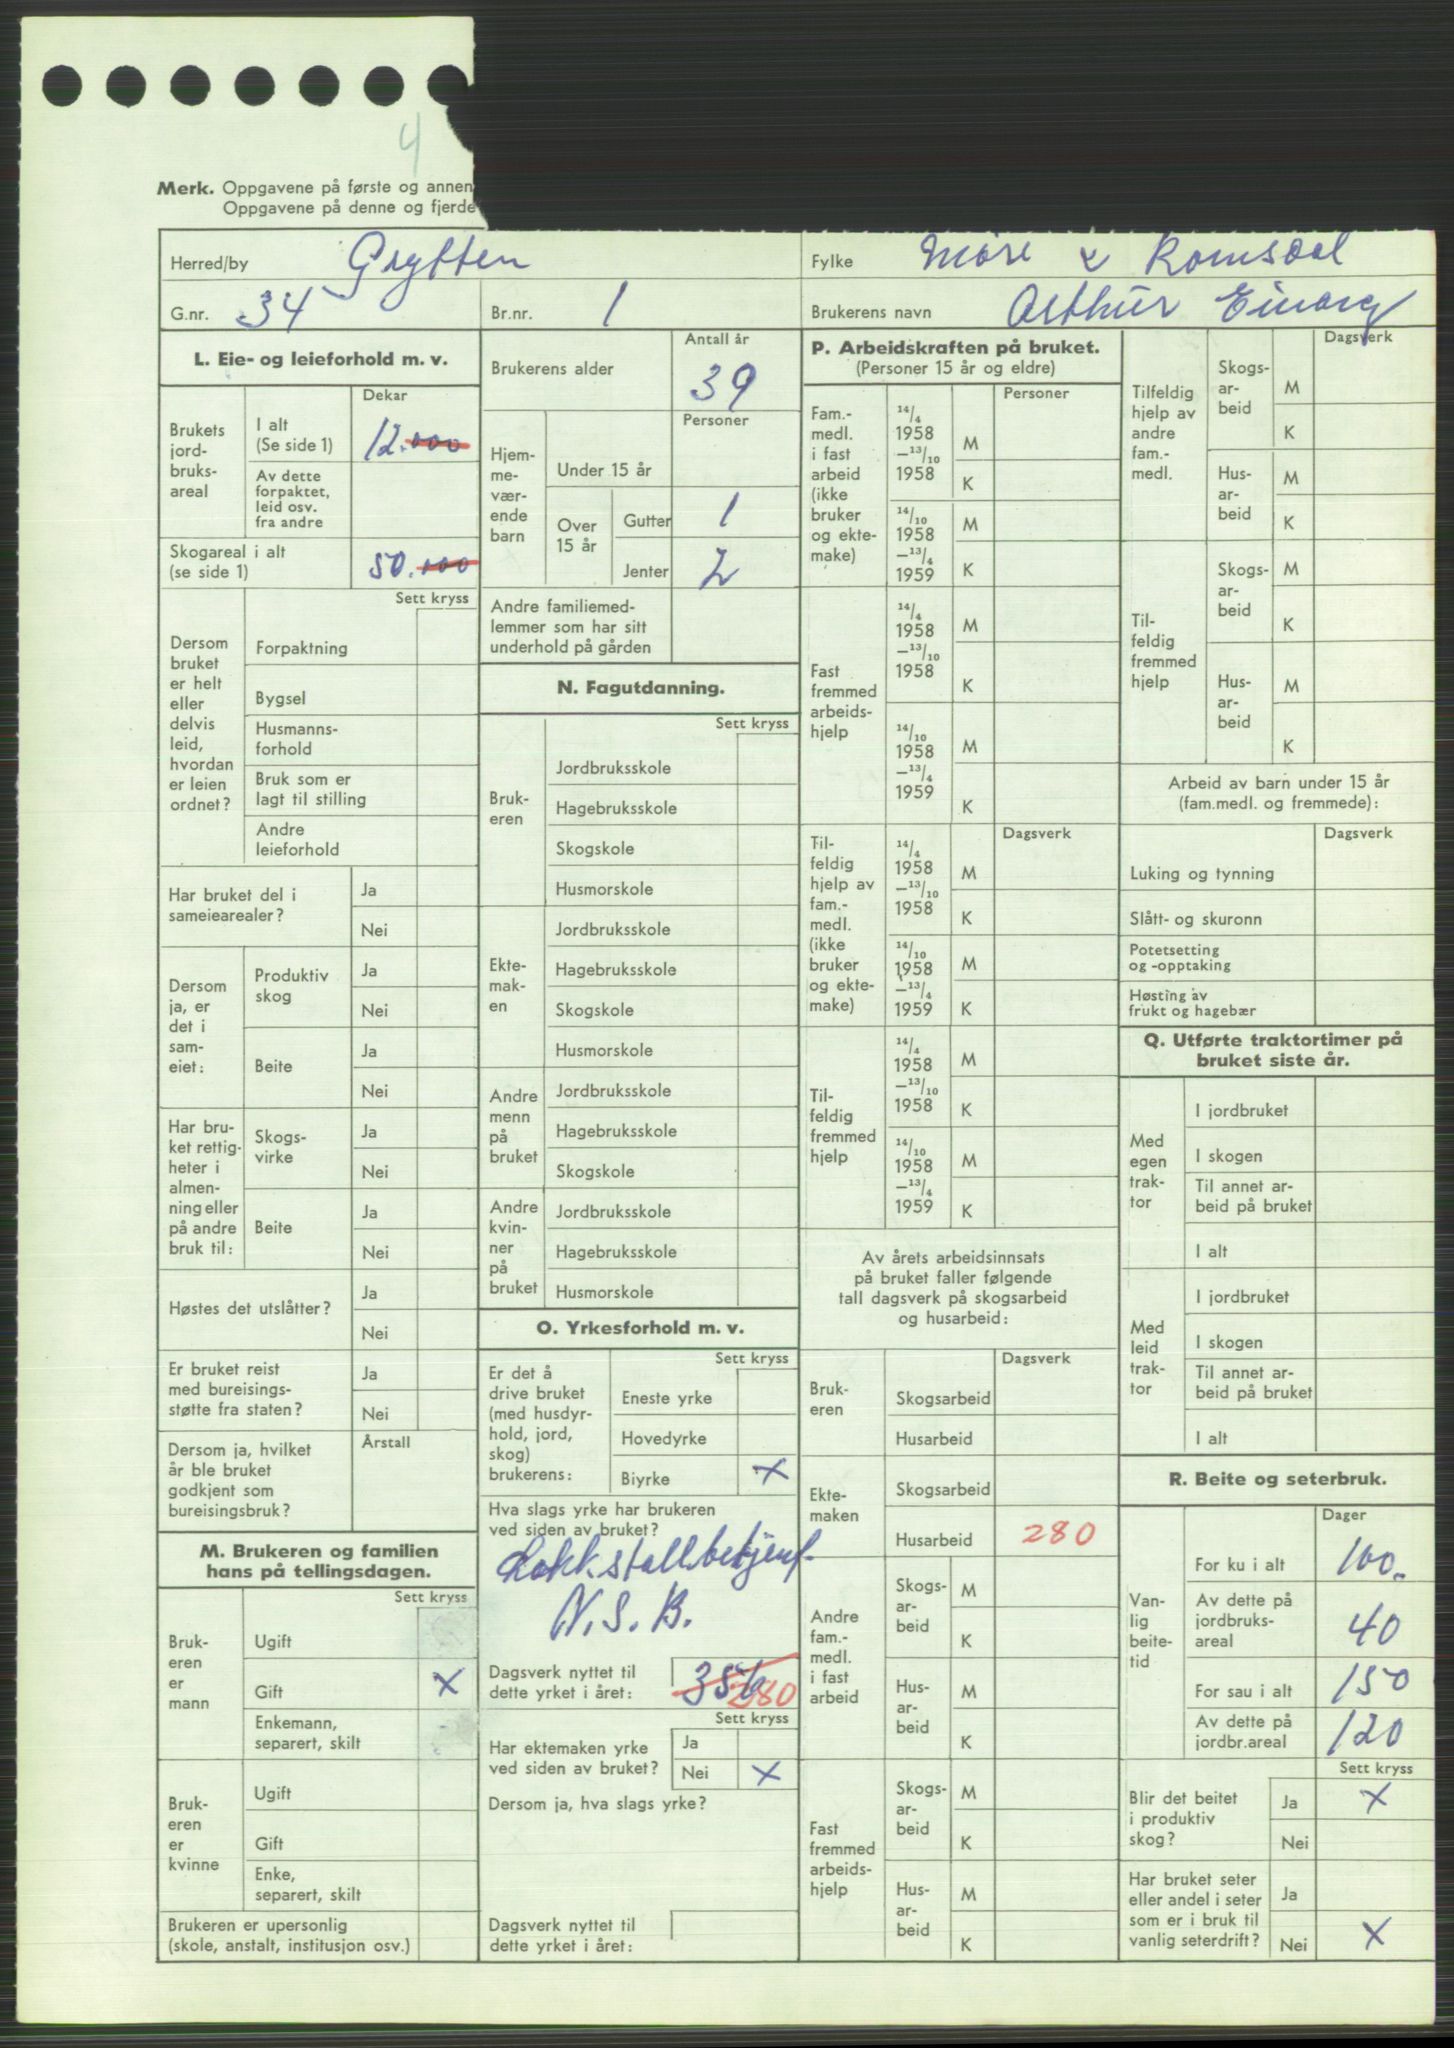 4
Merk. Oppgavene på første og annen
Oppgavene på denne og fjerde
Herred/by Grytten
Fylke Møre & Romsdal
G.nr. 34
Br.nr. 1
Brukerens navn Arthur
L. Eie- og leieforhold m. v.
Dekar
Brukets jord-bruks-areal
I alt (Se side 1) 12.000
Av dette forpaktet, leid osv. fra andre
Skogareal i alt (se side 1) 50.000
Sett kryss
Dersom bruket er helt eller delvis leid, hvordan er leien ordnet?
Forpaktning
Bygsel
Husmanns-forhold
Bruk som er lagt til stilling
Andre leieforhold
Har bruket del i sameiearealer?
Ja
Nei
Dersom ja, er det i sam-eiet:
Produktiv skog
Ja
Nei
Beite
Ja
Nei
Har bru-ket rettig-heter i almen-ning eller på andre bruk til:
Skogs-virke
Ja
Nei
Beite
Ja
Nei
Høstes det utslåtter?
Ja
Nei
Er bruket reist med bureisings-støtte fra staten?
Ja
Nei
Dersom ja, hvilket år ble bruket godkjent som bureisingsbruk?
Årstall
M. Brukeren og familien hans på tellingsdagen.
Sett kryss
Bruk-eren er mann
Ugift
Gift x
Enkemann, separert, skilt
Bruk-eren er kvinne
Ugift
Gift
Enke, separert, skilt
Brukeren er upersonlig (skole, anstalt, institusjon osv.)
Antall år
Brukerens alder 39
Personer
Hjem-me-vær-ende barn
Under 15 år
Over 15 år
Gutter 1
Jenter 2
Andre familiemed-lemmer som har sitt underhold på gården
N. Fagutdanning.
Sett kryss
Bruk-eren
Jordbruksskole
Hagebruksskole
Skogskole
Husmorskole
Ekte-mak-en
Jordbruksskole
Hagebruksskole
Skogskole
Husmorskole
Andre menn på bruket
Jordbruksskole
Hagebruksskole
Skogskole
Andre kvin-ner på bruket
Jordbruksskole
Hagebruksskole
Husmorskole
O. Yrkesforhold m. v.
Sett kryss
Er det å drive bruket (med husdyr-hold, jord, skog) brukerens:
Eneste yrke
Hovedyrke
Biyrke x
Hva slags yrke har brukeren ved siden av bruket?
Lokkstallbetjent
N.S.B.
Dagsverk nyttet til dette yrket i året: 280
Sett kryss
Har ektemaken yrke ved siden av bruket?
Ja
Nei x
Dersom ja, hva slags yrke?
Dagsverk nyttet til dette yrket i året:
P. Arbeidskraften på bruket.
(Personer 15 år og eldre)
Personer
Fam.-medl. i fast arbeid (ikke bruker og ekte-make)
14/4 1958 —13/10 1958
M
K
14/10 1958 —13/4 1959
M
K
Fast fremmed arbeids-hjelp
14/4 1958 —13/10 1958
M
K
14/10 1958 —13/4 1959
M
K
Dagsverk
Til-feldig hjelp av fam.-medl. (ikke bruker og ekte-make)
14/4 1958 —13/10 1958
M
K
14/10 1958 —13/4 1959
M
K
Til-feldig fremmed hjelp
14/4 1958 —13/10 1958
M
K
14/10 1958 —13/4 1959
M
K
Av årets arbeidsinnsats
på bruket faller følgende
tall dagsverk på skogsarbeid
og husarbeid:
Dagsverk
Bruk-eren
Skogsarbeid
Husarbeid
Ekte-maken
Skogsarbeid
Husarbeid 280
Andre fam.-medl. i fast arbeid
Skogs-ar-beid
M
K
Hus-ar-beid
M
K
Fast fremmed arbeids-hjelp
Skogs-ar-beid
M
K
Hus-ar-beid
M
K
Dagsverk
Tilfeldig hjelp av andre fam.-medl.
Skogs-ar-beid
M
K
Hus-ar-beid
M
K
Til-feldig fremmed hjelp
Skogs-ar-beid
M
K
Hus-ar-beid
M
K
Arbeid av barn under 15 år
(fam.medl. og fremmede):
Dagsverk
Luking og tynning
Slått- og skuronn
Potetsetting og -opptaking
Høsting av frukt og hagebær
Q. Utførte traktortimer på bruket siste år.
Med egen trak-tor
I jordbruket
I skogen
Til annet ar-beid på bruket
I alt
Med leid trak-tor
I jordbruket
I skogen
Til annet ar-beid på bruket
I alt
R. Beite og seterbruk.
Dager
Van-lig beite-tid
For ku i alt 100.
Av dette på jordbruks-areal 40
For sau i alt 150
Av dette på jordbr.areal 120
Sett kryss
Blir det beitet i produktiv skog?
Ja x
Nei
Har bruket seter eller andel i seter som er i bruk til vanlig seterdrift?
Ja
Nei x